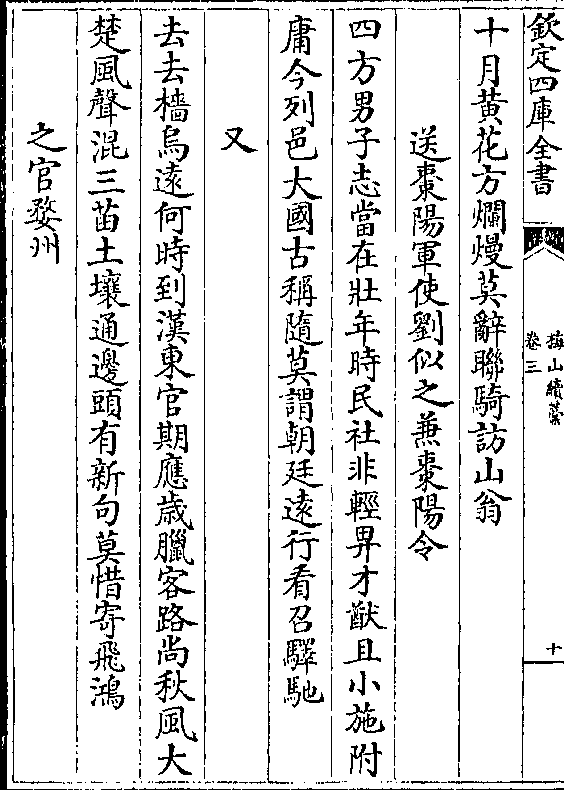 欽定四庫全書
梅山續藁
卷三
十
十月黄花方爛熳莫辭聯騎訪山翁
送棗陽軍使劉似之兼棗陽令
四方男子志當在壯年時民社非輕畀才猷且小施附
庸今列邑大國古稱隨莫謂朝廷遠行看召驛馳
又
去去檣烏遠何時到漢東官期應歳臘客路尚秋風大
楚風聲混三苗土壤通邊頭有新句莫惜寄飛鴻
之官婺州